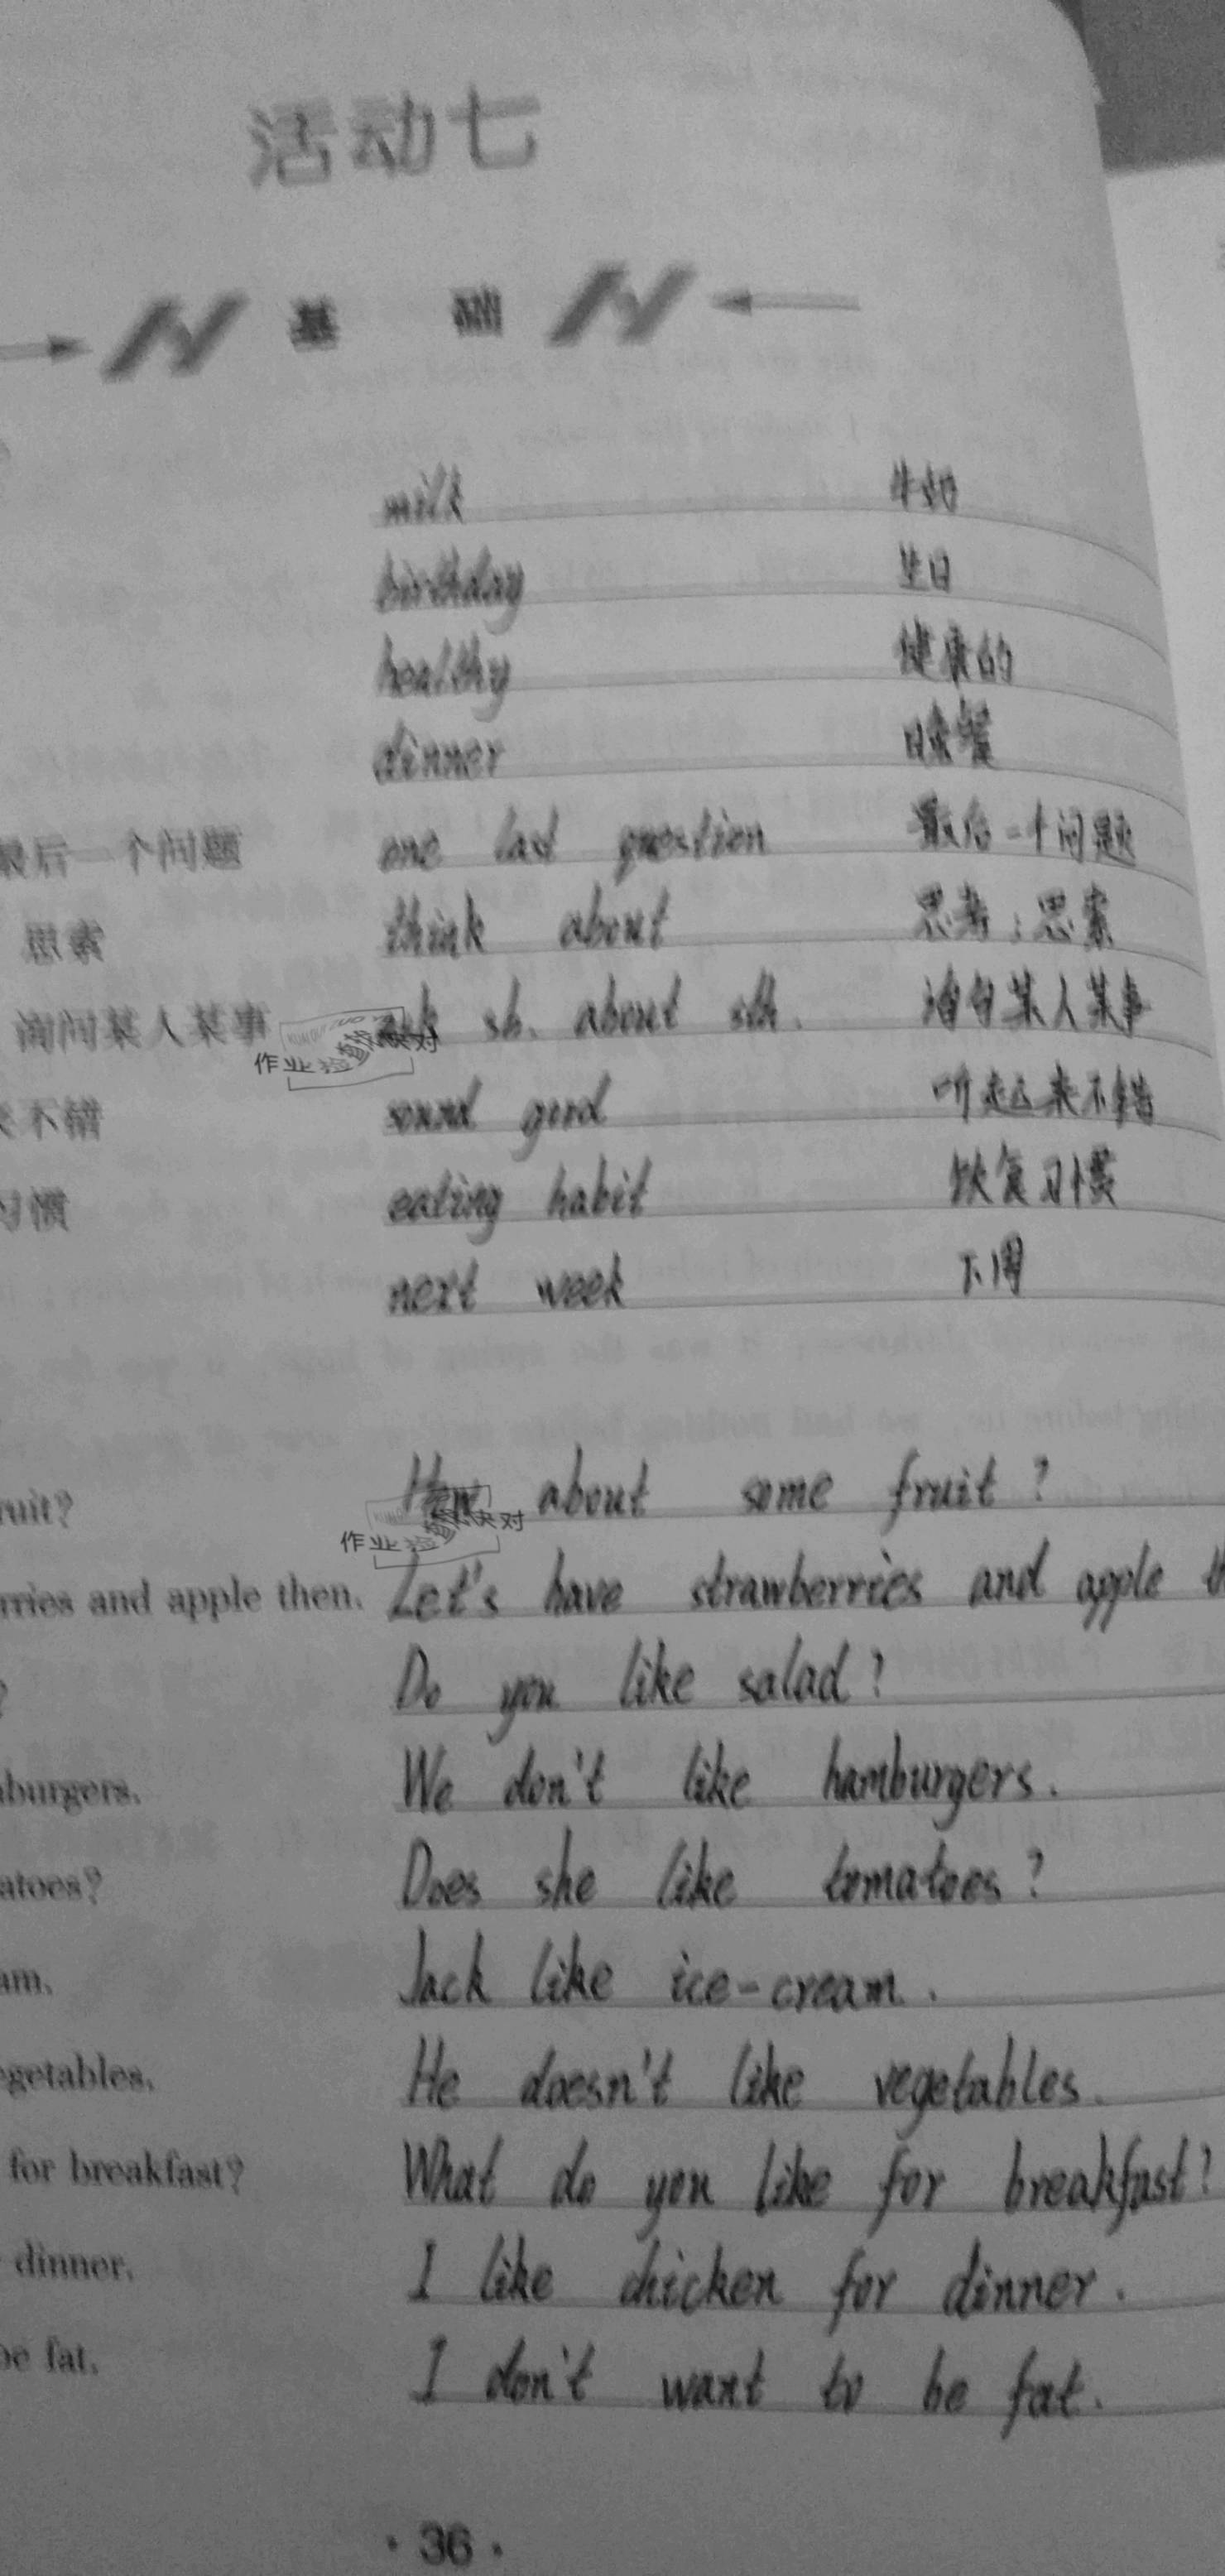 活动七
基 础
milk 牛奶
birthday 生日
healthy 健康的
dinner 晚餐
最后一个问题 one last question 最后一个问题
思索 think about 思考；思索
询问某人某事 ask sb. about sth. 询问某人某事
不错 sound good 听起来不错
习惯 eating habit 饮食习惯
next week 下周
ruit? How about some fruit?
rries and apple then. Let's have strawberries and apple th
? Do you like salad?
burgers. We don't like hamburgers.
atoes? Does she like tomatoes?
am. Jack like ice-cream.
getables. He doesn't like vegetables.
for breakfast? What do you like for breakfast?
dinner. I like chicken for dinner.
be fat. I don't want to be fat.
· 36 ·